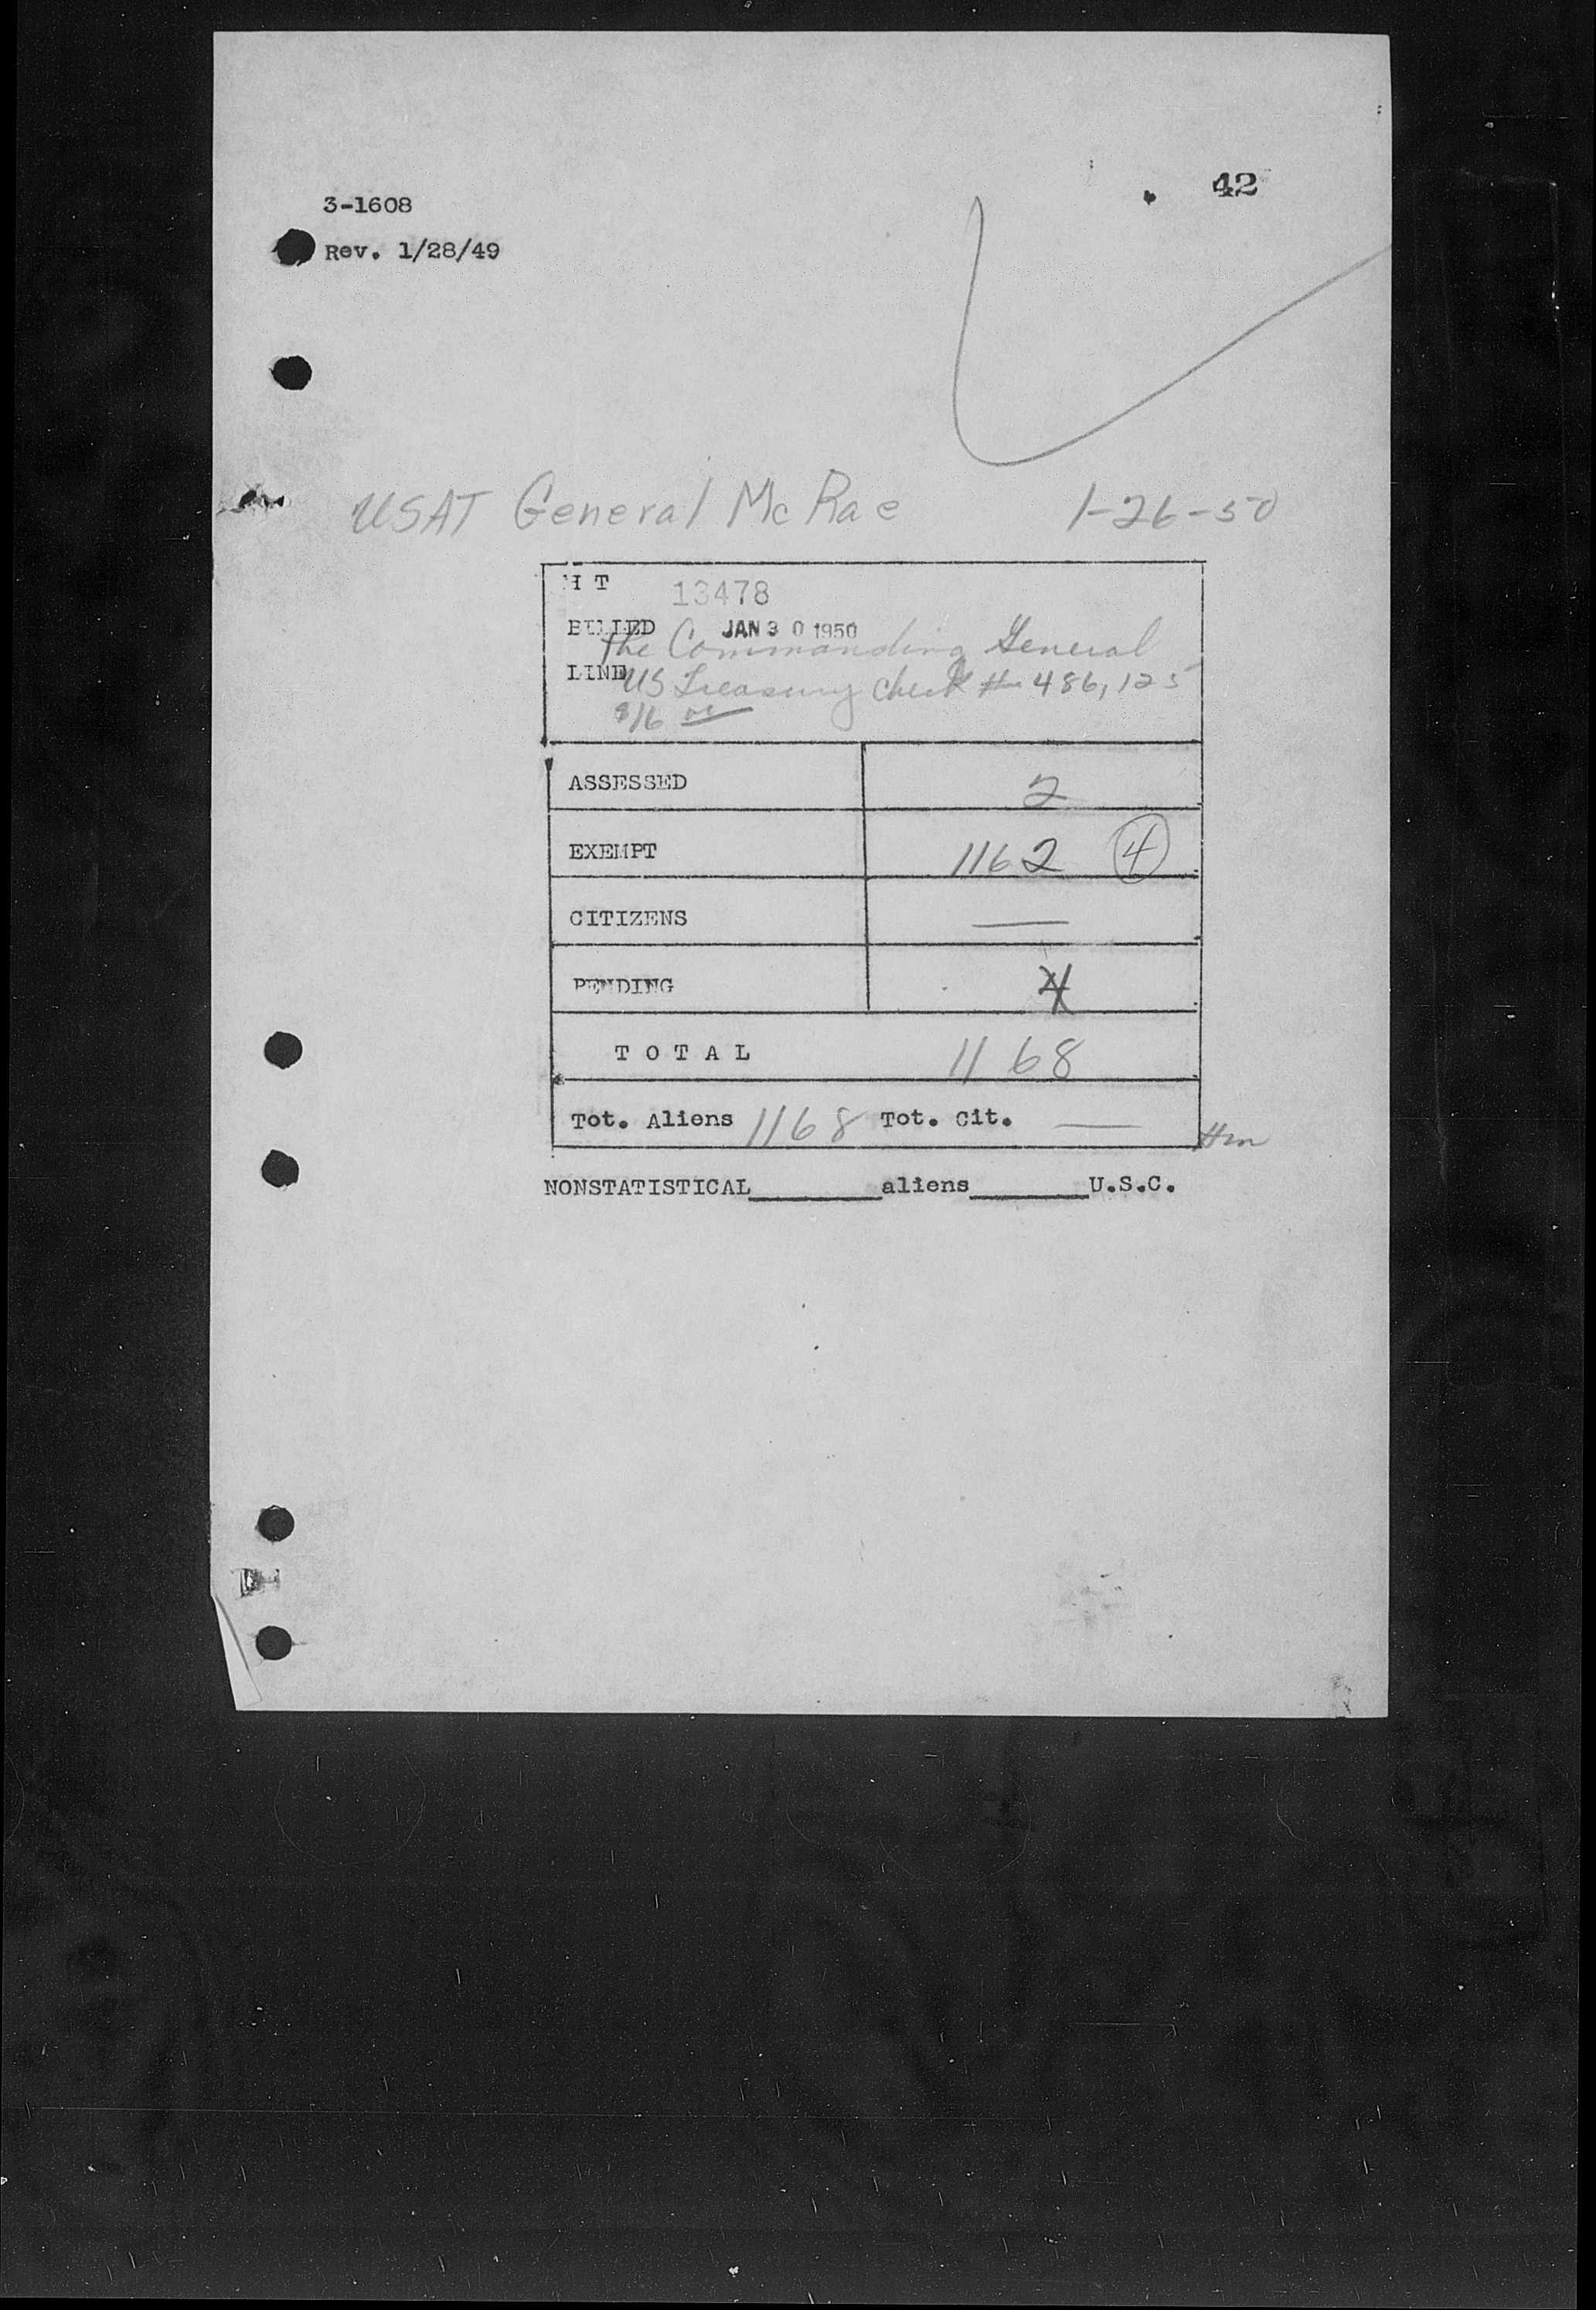 42
3-1608
Rev. 1/28/49
USAT General McRae 1-26-50
H T 13478
BILLED JAN 30 1950
The Commanding General
LINE US Treasury Check # 486,125
$16 00
ASSESSED 2
EXEMPT 1162 4
CITIZENS —
PENDING 4
TOTAL 1168
Tot. Aliens 1168 Tot. Cit. —
NONSTATISTICAL________aliens________U.S.C.